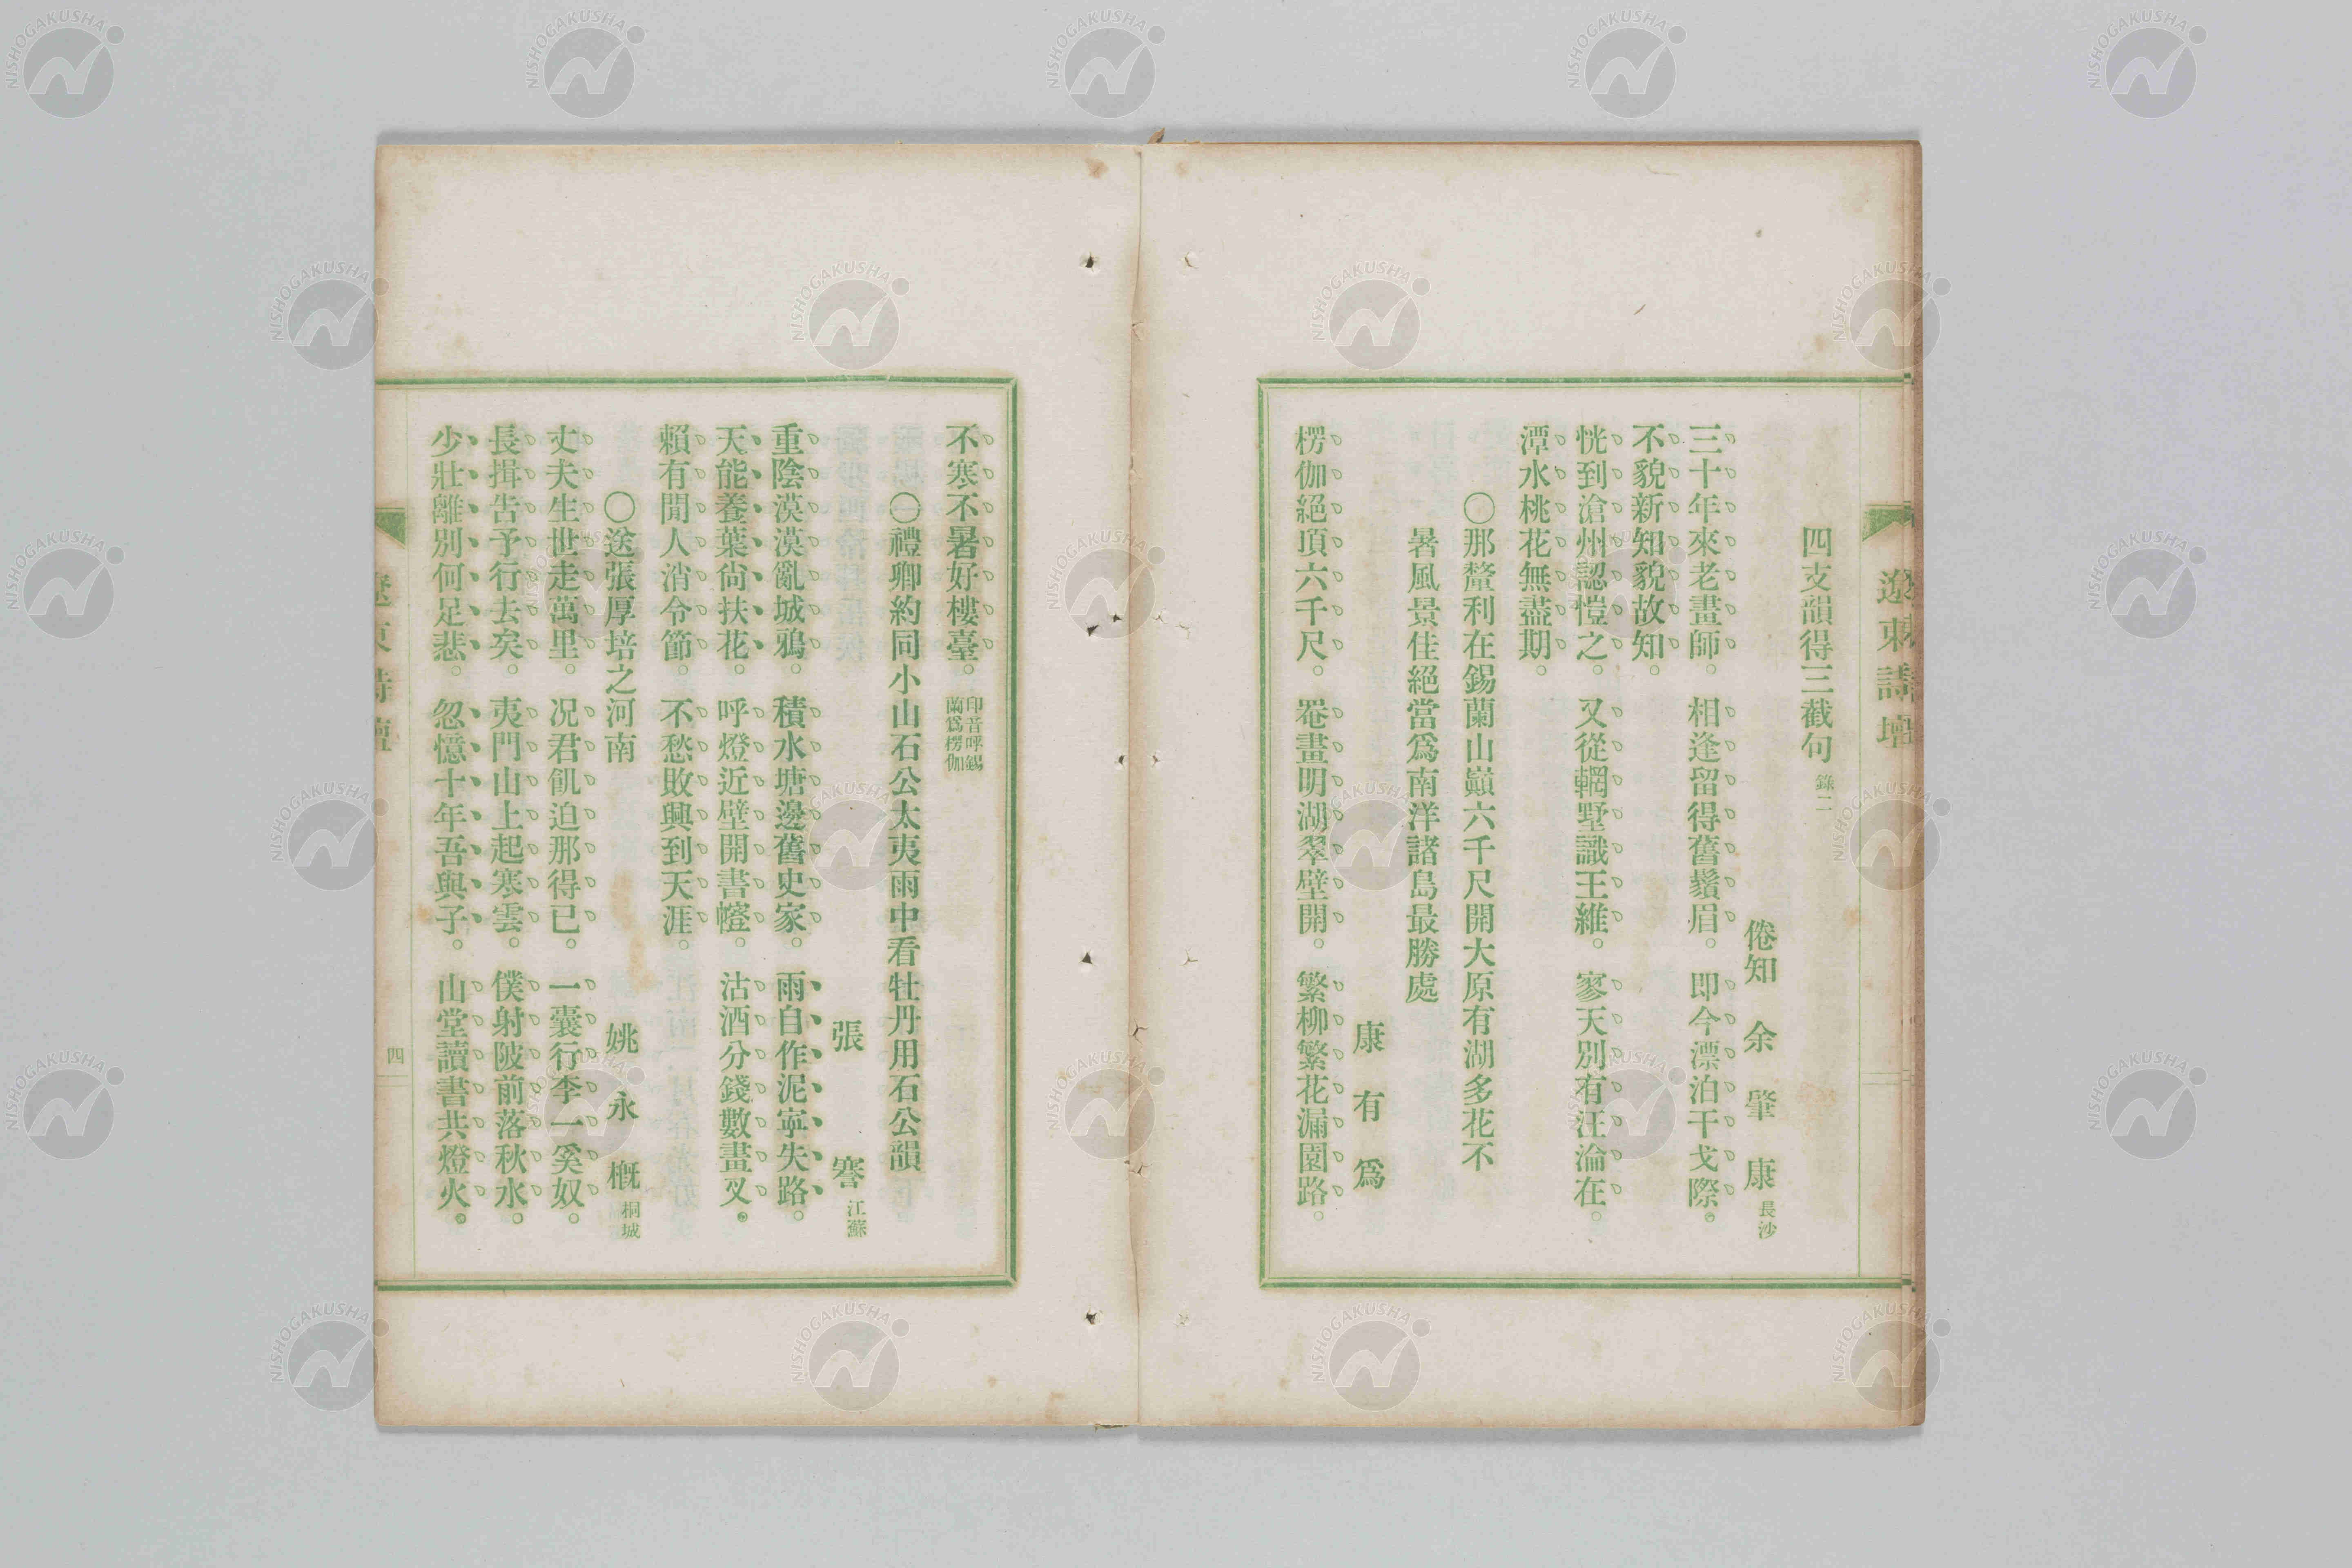 遼東詩壇
四支韻得三截句 錄二
倦知 余肇康 長沙
三十年來老畫師。相逢留得舊鬚眉。卽今漂泊干戈際。
不貌新知貌故知。
恍到滄州認愷之。又從輞墅識王維。寥天別有汪淪在。
潭水桃花無盡期。
〇那盩利在錫蘭山巔六千尺開大原有湖多花不
暑風景佳絕當爲南洋諸島最勝處
康有爲
楞伽絕頂六千尺。罨畫明湖翠壁開。繁柳繁花漏園路。
不寒不暑好樓臺。印音呼錫蘭爲楞伽
〇禮卿約同小山石公太夷雨中看牡丹用石公韻
張謇 江蘇
重陰漠漠亂城鴉。積水塘邊舊史家。雨自作泥寧失路。
天能養葉尙扶花。呼燈近壁開書幰。沽酒分錢數畫叉。
賴有閒人消令節。不愁敗興到天涯。
〇送張厚培之河南
姚永概 桐城
丈夫生世走萬里。况君飢迫那得已。一囊行李一奚奴。
長揖告予行去矣。夷門山上起寒雲。僕射陂前落秋水。
少壯離別何足悲。忽憶十年吾與子。山堂讀書共燈火。
遼東詩壇
四
NISHOGAKUSHA